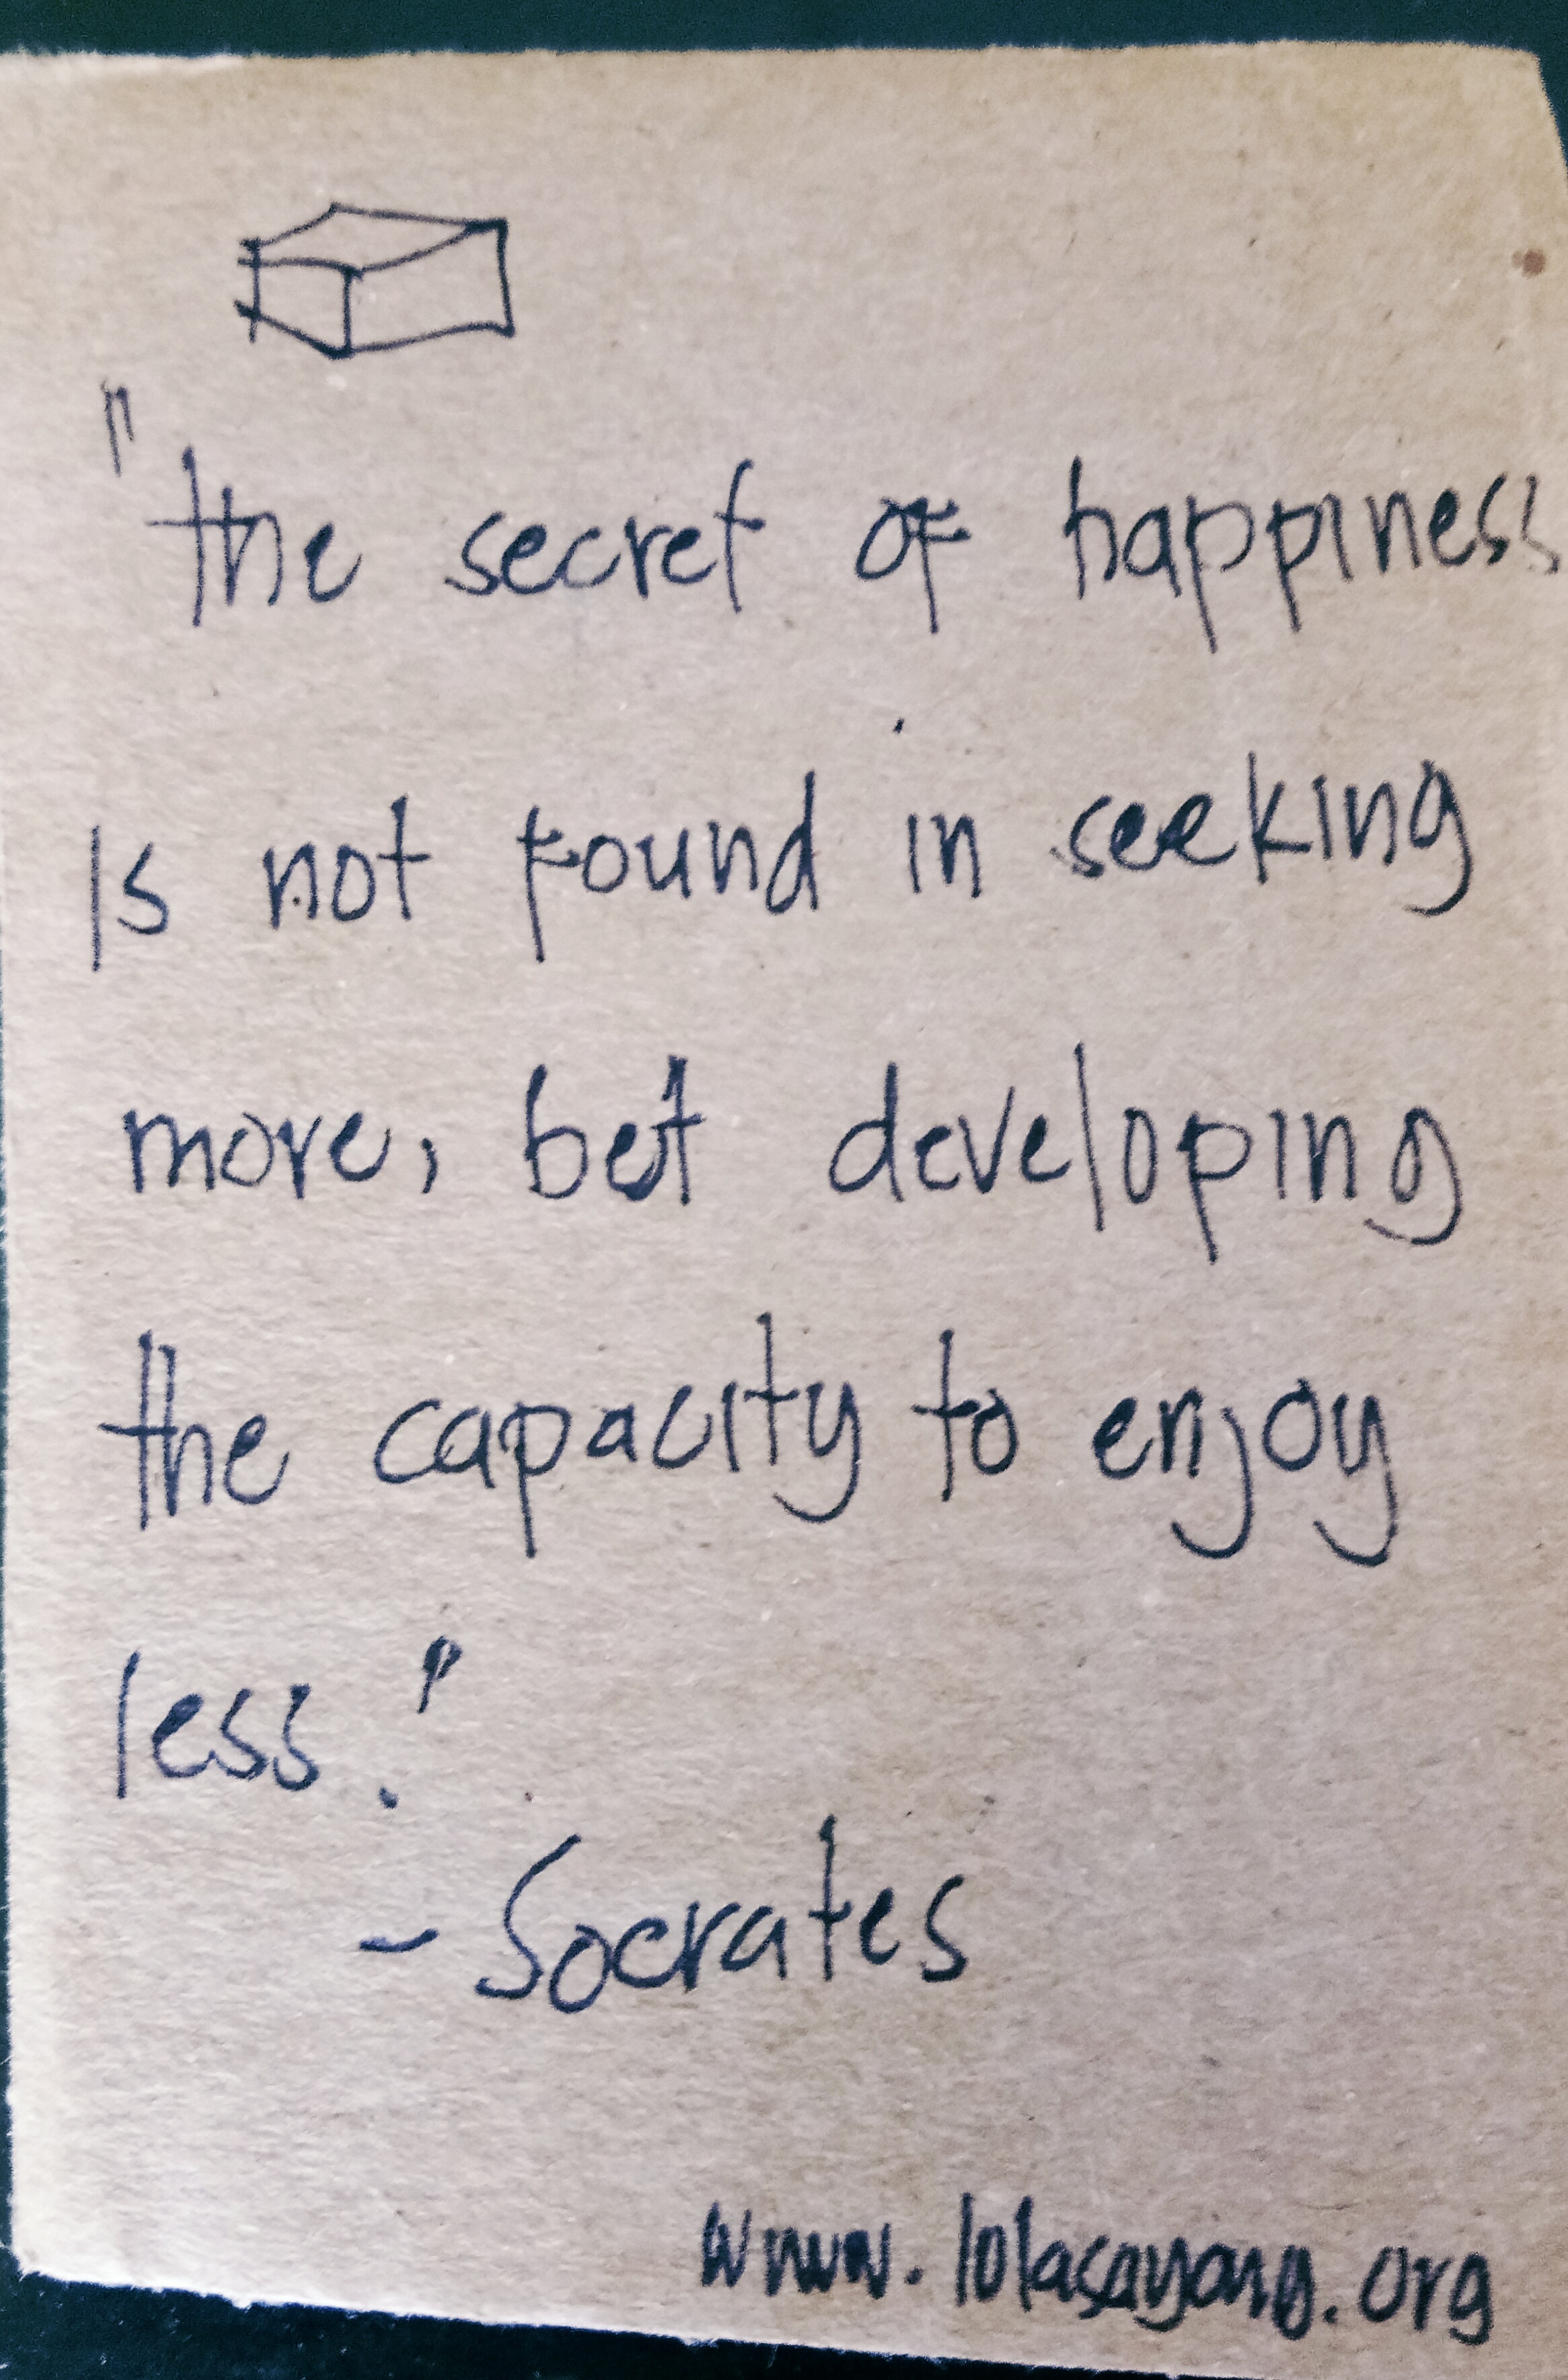 "the secret of happiness
is not found in seeking
more, but developing
the capacity to enjoy
less."
- Socrates
www.lolasayong.org